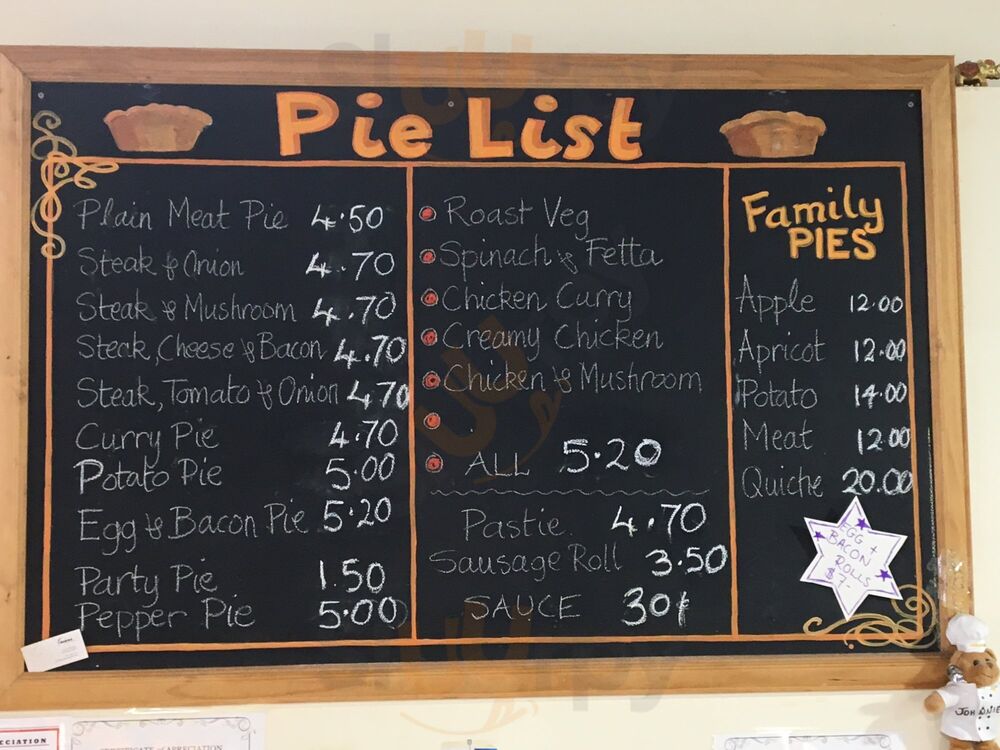 Pie List
Plain Meat Pie 4.50
Steak & Onion 4.70
Steak & Mushroom 4.70
Steak, Cheese & Bacon 4.70
Steak, Tomato & Onion 4.70
Curry Pie 4.70
Potato Pie 5.00
Egg & Bacon Pie 5.20
Party Pie 1.50
Pepper Pie 5.00
Roast Veg
Spinach & Fetta
Chicken Curry
Creamy Chicken
Chicken & Mushroom
ALL 5.20
Pastie 4.70
Sausage Roll 3.50
SAUCE 30¢
Family
PIES
Apple 12.00
Apricot 12.00
Potato 14.00
Meat 12.00
Quiche 20.00
EGG +
BACON
ROLLS
$7-
CERTIFICATE of APPRECIATION